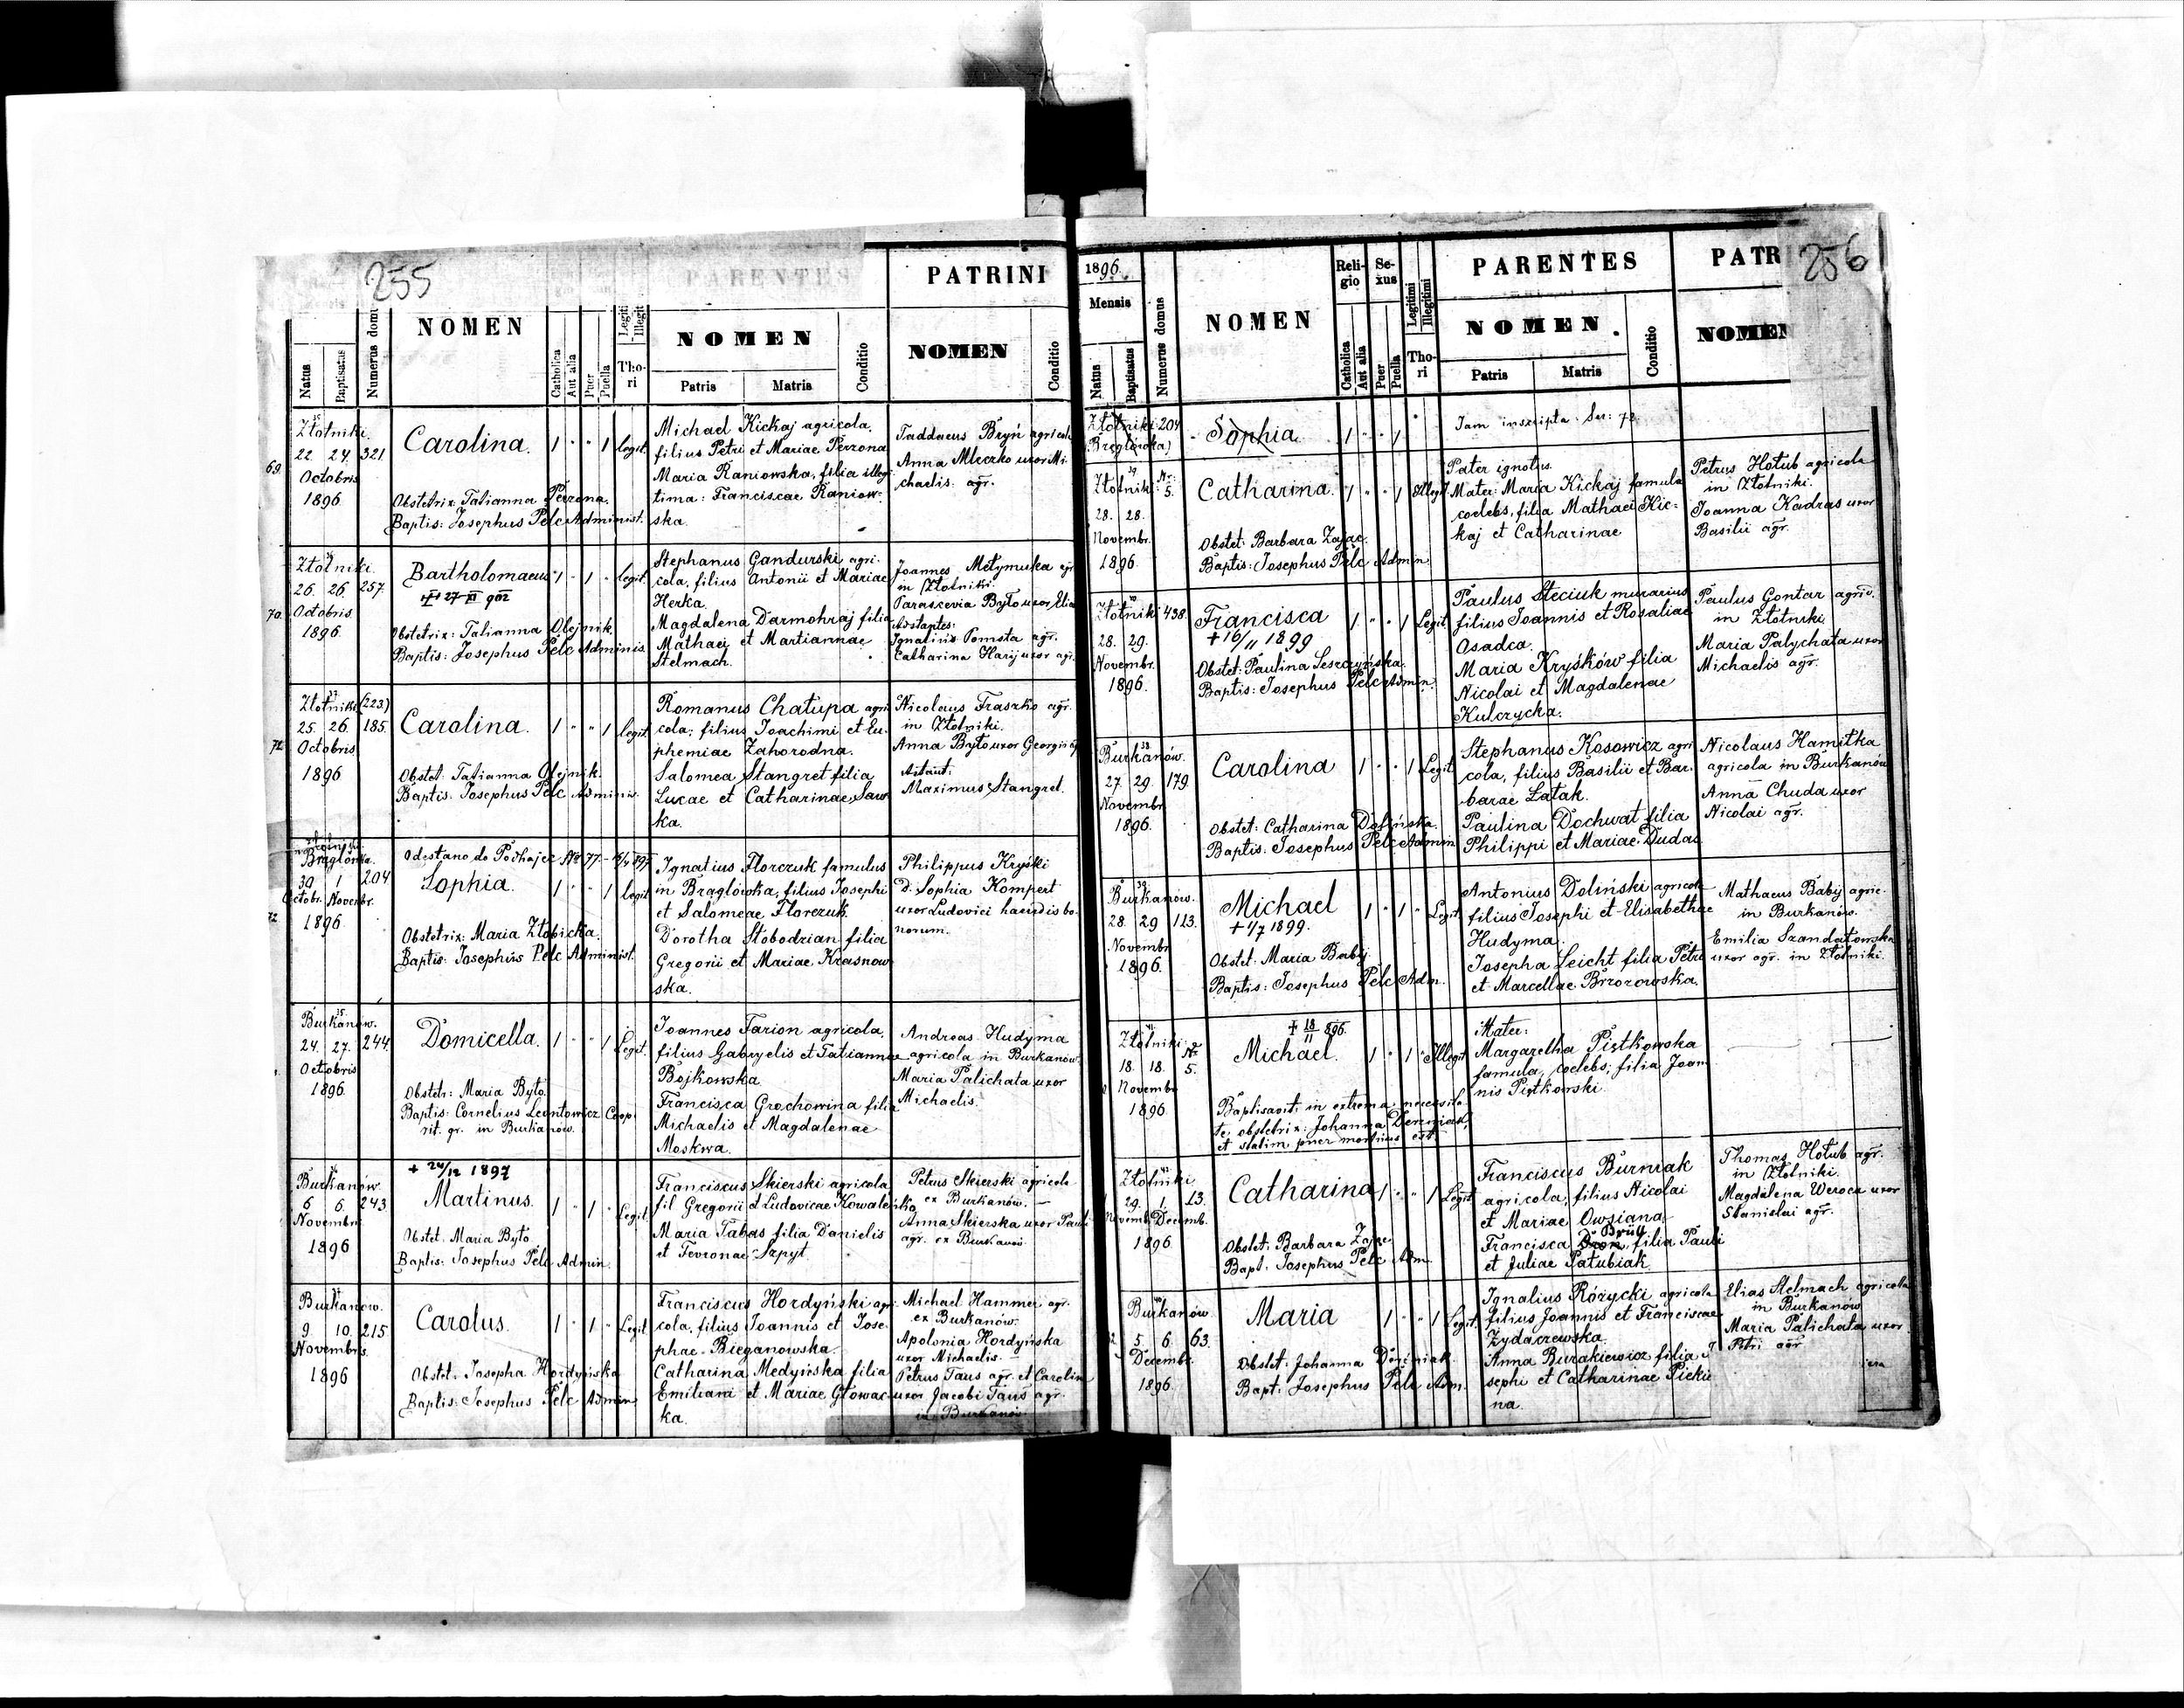 255
PARENTES
PATRINI
NOMEN
NOMEN
NOMEN
Natus
Baptisatus
Numerus domu
Catholica
Aut alia
Puer
Puella
Legiti
Illegit
Thori
Patris
Matris
Conditio
Conditio
69
Złotniki.
22. 24. 321
Octobris
1896
Carolina. 1 " " 1 legit.
Obstetrix: Tatianna Perzona.
Baptis: Josephus Pelc Administ.
Michael Kickaj agricola,
filius Petri et Mariae Perzona
Maria Raniowska, filia illegi-
tima: Franciscae Raniow-
ska.
Taddaeus Bryń agricola
Anna Mleczko uxor Mi-
chaelis agr.
70.
Złotniki.
26. 26. 257.
Octobris.
1896
Bartholomaeus 1 " 1 " legit.
Obstetrix: Tatianna Olejnik.
Baptis: Josephus Pelc Adminis.
Stephanus Gandurski agri-
cola, filius Antonii et Mariae
Herka.
Magdalena Darmohraj filia
Mathaei et Martiannae
Stelmach.
Joannes Metymuka agr
in Złotniki.
Parascevia Byto uxor Elia
Adstantes:
Ignatius Pomsta agr.
Catharina Harij uxor agr.
Złotniki (223)
25. 26. 185.
Octobris
1896
Carolina. 1 " " 1 legit.
Obstet: Tatianna Olejnik.
Baptis. Josephus Pelc Adminis.
Romanus Chałupa agri
cola; filius Joachimi et Eu-
phemiae Zahorodna.
Salomea Stangret filia
Lucae et Catharinae Saw
ka.
Nicolaus Fraszko agr.
in Złotniki.
Anna Byto uxor Georgii
Astant:
Maximus Stangret.
72
Braglówka.
30. 1. 204
Octobr. Novembr.
1896
Odesłano do Podhajec № 77
Sophia. 1 " " 1 legit
Obstetrix: Maria Złobicka.
Baptis: Josephus Pelc Administ.
Ignatius Florczuk famulus
in Braglówka, filius Josephi
et Salomeae Florczuk.
Dorotha Słobodzian filia
Gregorii et Mariae Krasnow
ska.
Philippus Kryśki
D. Sophia Kompert
uxor Ludovici haeredis bo-
norum.
Burkanów.
24. 27. 244.
Octobris
1896.
Domicella. 1 " " 1 Legit.
Obstetr: Maria Byto.
Baptis: Cornelius Leontowicz Coop.
rit. gr. in Burkanów.
Joannes Farion agricola,
filius Gabryelis et Tatiannae
Bojkowska.
Francisca Grochowina filia
Michaelis et Magdalenae
Moskwa.
Andreas Hudyma
agricola in Burkanów.
Maria Palichata uxor
Michaelis.
Burkanów.
6 6. 243
Novembr.
1896
+ 24/12 1897
Martinus. 1 " 1 " Legit.
Obstet. Maria Byto
Baptis: Josephus Pelc Admin.
Franciscus Skierski agricola
fil Gregorii et Ludovicae Kowalejska
Maria Tabas filia Danielis
et Tevronae Szpyt.
Petrus Skierski agricola
ex Burkanów. —
Anna Skierska uxor Pauli
agr. ex Burkanów
Burkanów.
9. 10. 215.
Novembris.
1896
Carolus. 1 " 1 " Legit
Obstet: Josepha Hordyńska
Baptis: Josephus Pelc Admin
Franciscus Hordyński agri-
cola, filius Joannis et Jose-
phae Bieganowska.
Catharina Medyńska filia
Emiliani et Mariae Głowac
ka.
Michael Hammer agr.
ex Burkanów.
Apolonia Hordyńska
uxor Michaelis. —
Petrus Taus agr. et Carolin
uxor Jacobi Taus agr.
in Burkanów
256
1896.
Mensis
Natus
Baptisatus
Numerus domus
NOMEN
Religio
Catholica
Aut alia
Sexus
Puer
Puella
Legitimi
Illegitimi
Thori
PARENTES
NOMEN.
Patris
Matris
Conditio
PATR
NOMEN
Złotniki 204
(Braglówka)
Sophia. 1 " " 1
Jam inscripta Ser: 72
Złotniki Nr. 5.
28. 28.
Novembr.
1896.
Catharina. 1 " " 1 Illegit
Obstet: Barbara Zając.
Baptis: Josephus Pelc Admin
Pater ignotus.
Mater: Maria Kickaj famula
coelebs, filia Mathaei Kic-
kaj et Catharinae
Petrus Hołub agricola
in Złotniki.
Joanna Kadras uxor
Basilii agr.
Złotniki 438.
28. 29.
Novembr.
1896.
Francisca 1 " " 1 Legit.
+ 16/11 1899
Obstet: Paulina Leszczyńska.
Baptis: Josephus Pelc Admin.
Paulus Steciuk murarius
filius Joannis et Rosaliae
Osadca.
Maria Kryśków filia
Nicolai et Magdalenae
Kulczycka.
Paulus Gontar agric.
in Złotniki.
Maria Palychata uxor
Michaelis agr.
Burkanów.
27. 29. 179.
Novembr.
1896.
Carolina 1 " " 1 Legit.
Obstet: Catharina Dolińska.
Baptis: Josephus Pelc Admin
Stephanus Kosowicz agri
cola, filius Basilii et Bar-
barae Łatak.
Paulina Dochwat filia
Philippi et Mariae Dudas
Nicolaus Hamitka
agricola in Burkanów
Anna Chuda uxor
Nicolai agr.
Burkanów.
28. 29 113.
Novembr
1896.
Michael 1 " 1 " Legit.
+ 1/7 1899.
Obstet: Maria Babij.
Baptis: Josephus Pelc Adm.
Antonius Doliński agricola
filius Josephi et Elisabethae
Hudyma.
Josepha Leicht filia Petri
et Marcellae Brzozowska.
Mathaeus Babij agric.
in Burkanów.
Emilia Szandatowska
uxor agr. in Złotniki.
Złotniki
18. 18. № 5.
Novembr
1896
+ 18/11 896.
Michael. 1 " 1 " Illegit
Baptisavit in extrema necessita-
te obstetrix: Johanna Dereniak,
et statim puer mortuus est.
Mater:
Margaretha Piątkowska
famula, coelebs; filia Joan
nis Piątkowski
Złotniki.
29. 1. 13.
Novemb. Decemb.
1896
Catharina 1 " " 1 Legit
Obstet: Barbara Zając
Bapt: Josephus Pelc Adm
Franciscus Burniak
agricola, filius Nicolai
et Mariae Owsiana.
Brüll
Francisca Dron, filia Pauli
et Juliae Patubiak.
Thomas Hołub agr.
in Złotniki.
Magdalena Weroca uxor
Stanislai agr.
Burkanów
5. 6. 63.
Decembr.
1896
Maria 1 " " 1 Legit.
Obstet: Johanna Dereniak
Bapt: Josephus Pelc Adm.
Ignatius Różycki agricola
filius Joannis et Franciscae
Żydaczewska.
Anna Burakiewicz filia Jo
sephi et Catharinae Pieku
na.
Elias Stelmach agricola
in Burkanów
Maria Palichata uxor
Petri agr